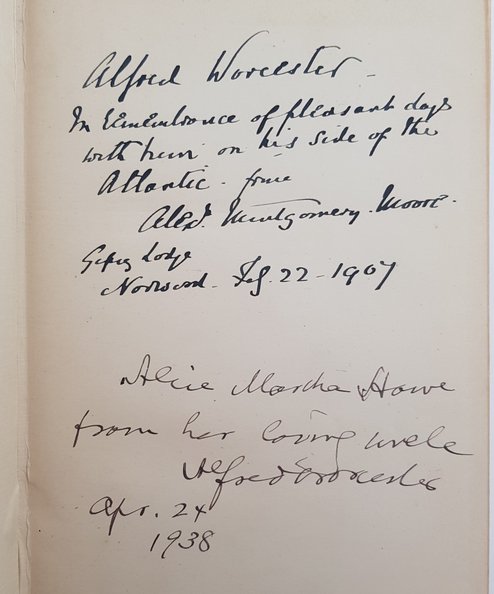 Alfred Worcester
In remembrance of pleasant days
with him on his side of the
Atlantic. from
Alexr. Montgomery. Moore.
Gipsy Lodge
Norwood. Feb. 22 - 1907
Alice Martha Howe
from her loving uncle
Alfred Worcester
Apr. 24
1938